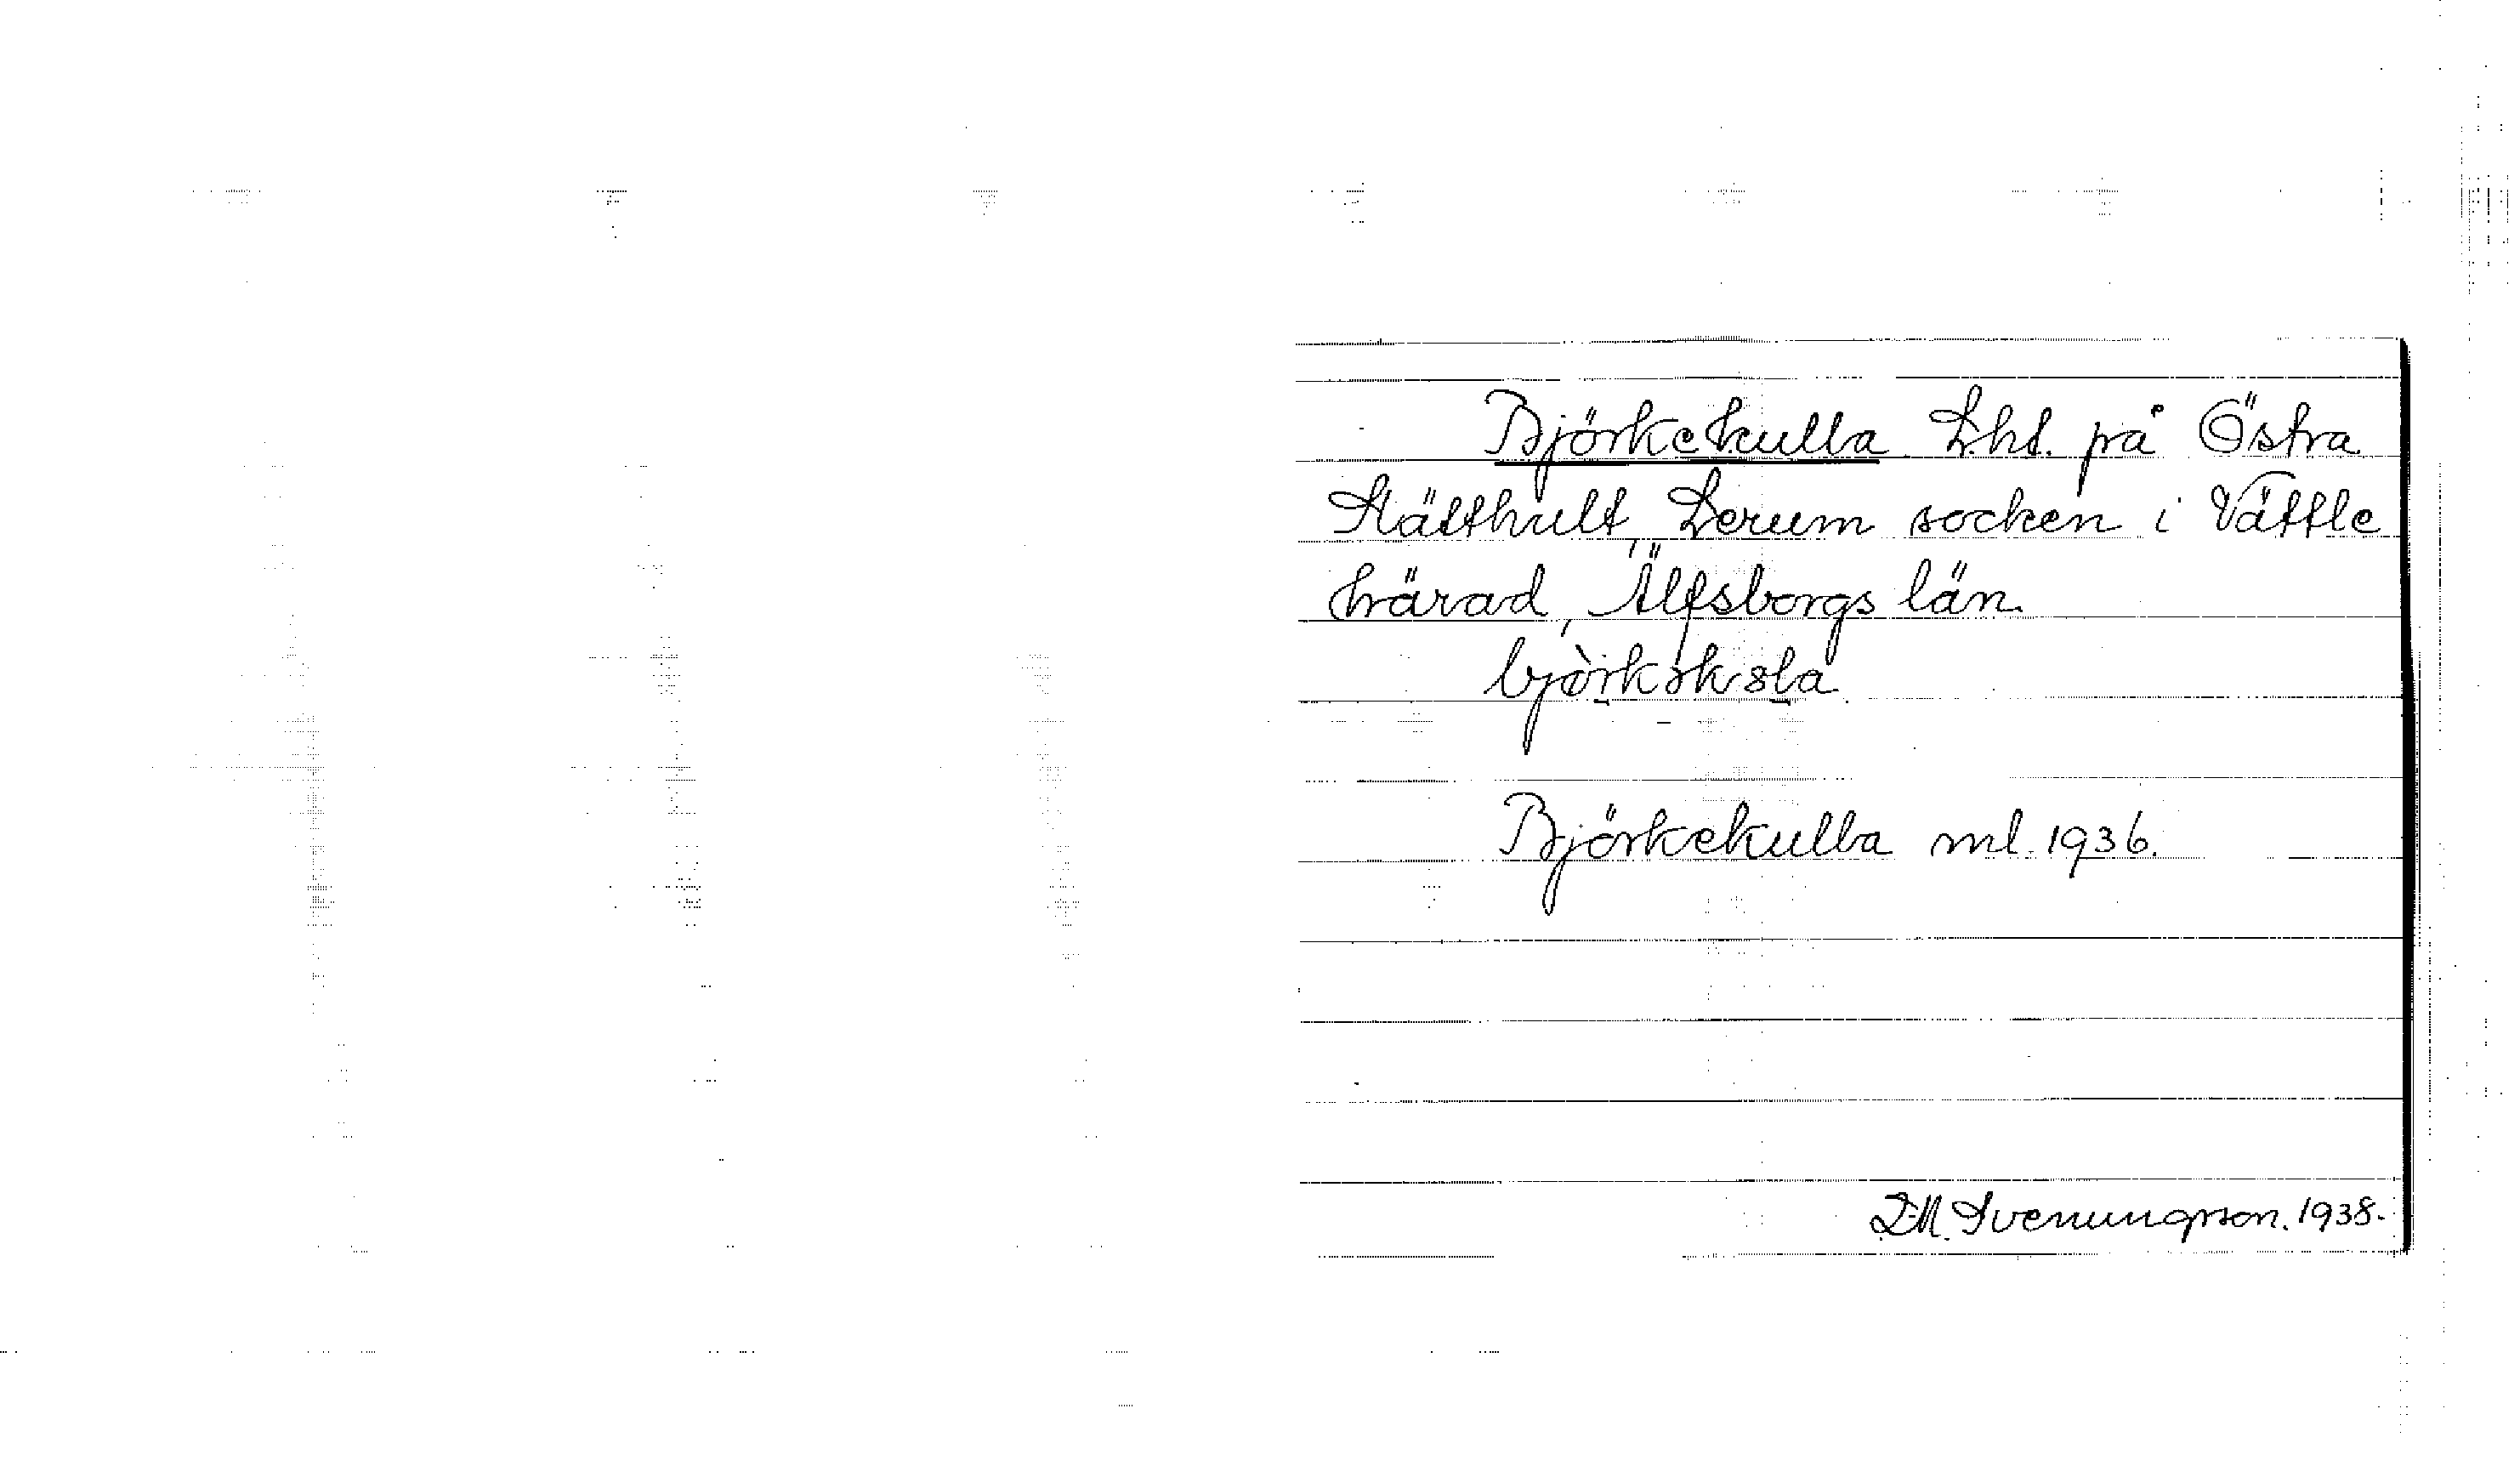 Björkekulla Lht. på Östra
Stätthult, Lerum socken i Vättle
härad, Älfsborgs län.
Björkekulla ml. 1936.
D.M. Svenungsson. 1938.